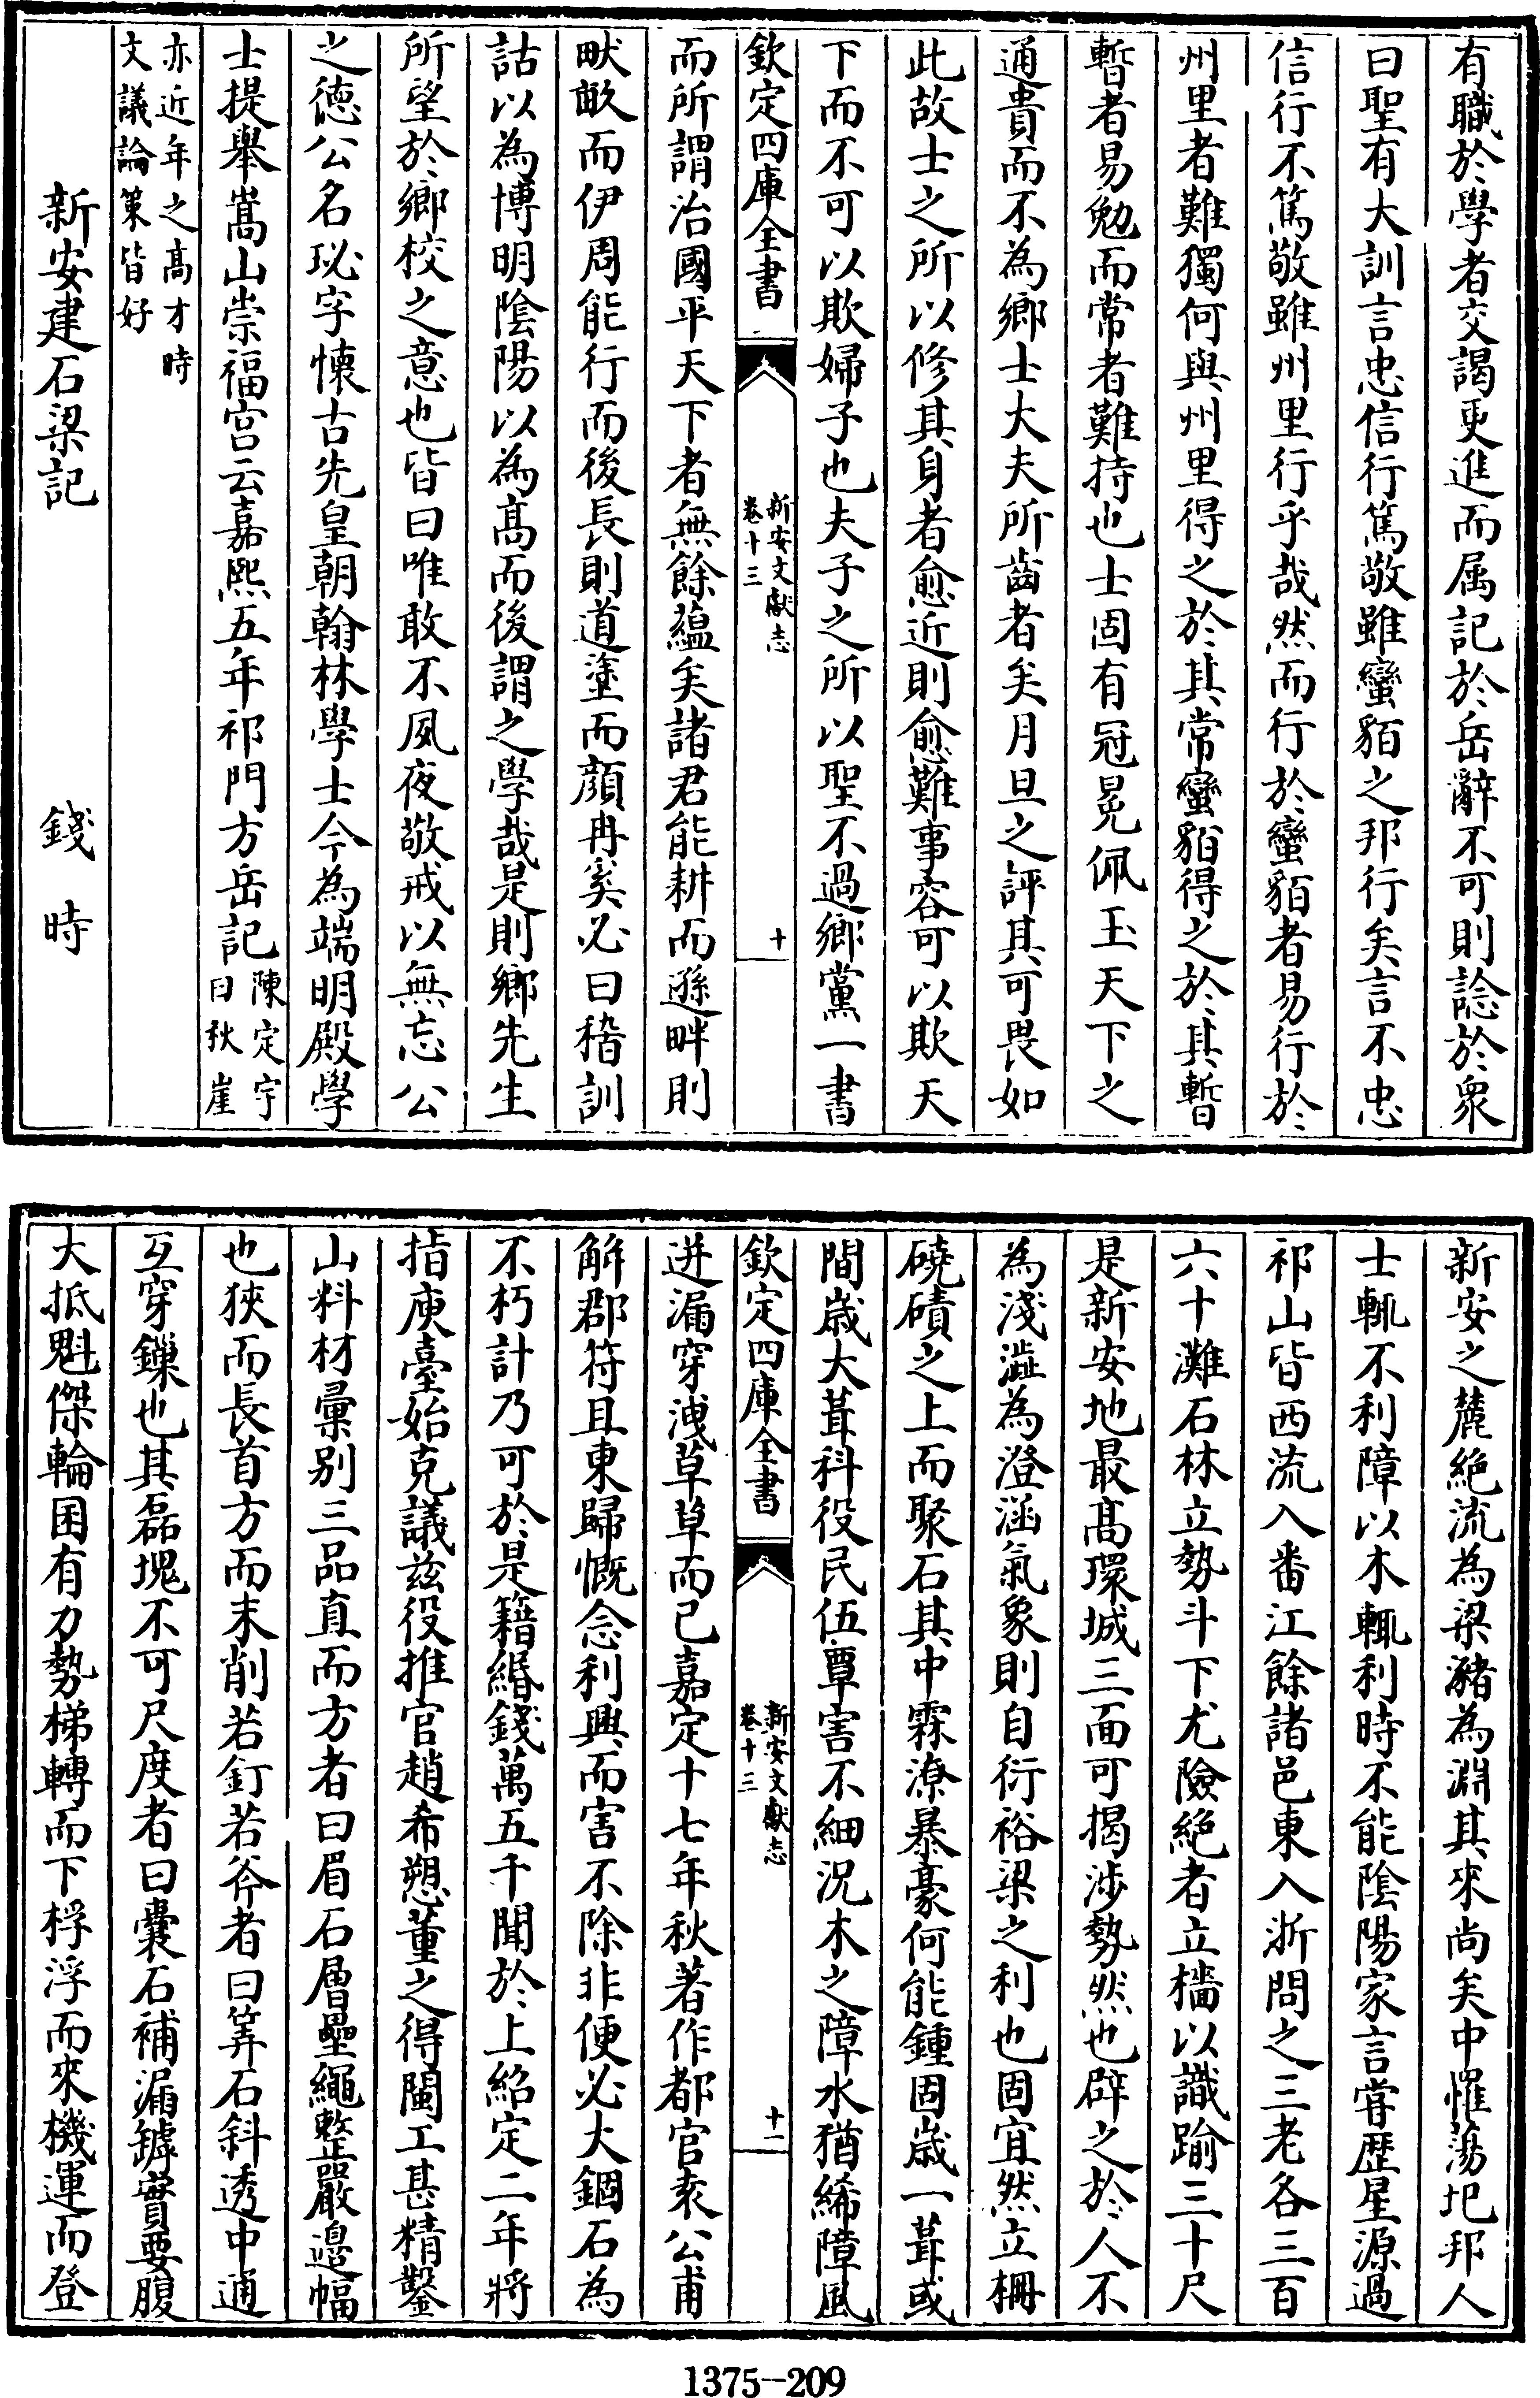 有職於學者交謁更進而属記於岳辭不可則諗於衆
曰聖有大訓言忠信行篤敬雖蠻貊之邦行矣言不忠
信行不篤敬雖州里行乎哉然而行於蠻貊者易行於
州里者難獨何與州里得之於其常蠻貊得之於其暫
暫者易勉而常者難持也士固有冠冕佩玉天下之
通貴而不為鄉士大夫所齒者矣月旦之評其可畏如
此故士之所以修其身者愈近則愈難事容可以欺天
下而不可以欺婦子也夫子之所以聖不過鄉黨一書
欽定四庫全書
新安文獻志
卷十三
十
而所謂治國平天下者無餘蘊矣諸君能耕而遜畔則
畎畝而伊周能行而後長則道塗而顔冉奚必曰稽訓
詁以為博明陰陽以為髙而後謂之學哉是則鄉先生
所望於鄉校之意也皆曰唯敢不夙夜敬戒以無忘公
之徳公名珌字懐古先皇朝翰林學士今為端明殿學
士提舉嵩山崇福宫云嘉熙五年祁門方岳記
陳定宇
曰秋崖
亦近年之髙才時
文議論策皆好
新安建石梁記
錢時
新安之麓絶流為梁瀦為淵其來尚矣中罹蕩圯邦人
士輒不利障以木輒利時不能陰陽家言嘗歴星源過
祁山皆西流入番江餘諸邑東入浙問之三老各三百
六十灘石林立勢斗下尤險絶者立檣以識踰三十尺
是新安地最髙環城三面可揭涉勢然也辟之於人不
為淺澁為澄涵氣象則自衍裕梁之利也固宜然立柵
磽磧之上而聚石其中霖潦暴豪何能鍾固歳一葺或
間歳大葺科役民伍覃害不細況木之障水猶絺障風
欽定四庫全書
新安文獻志
卷十三
十一
迸漏穿洩草草而已嘉定十七年秋著作都官袤公甫
解郡符且東歸慨念利興而害不除非便必大錮石為
不朽計乃可於是籍緡錢萬五千聞於上紹定二年將
指庾臺始克議兹役推官趙希愬董之得閩工甚精鑿
山料材彚别三品直而方者曰眉石層壘繩整嚴邉幅
也狹而長首方而末削若釘若斧者曰筭石斜透中通
互穿鏁也其磊塊不可尺度者曰囊石補漏罅實要腹
大抵魁傑輪囷有力勢梯轉而下桴浮而來機運而登
1375--209